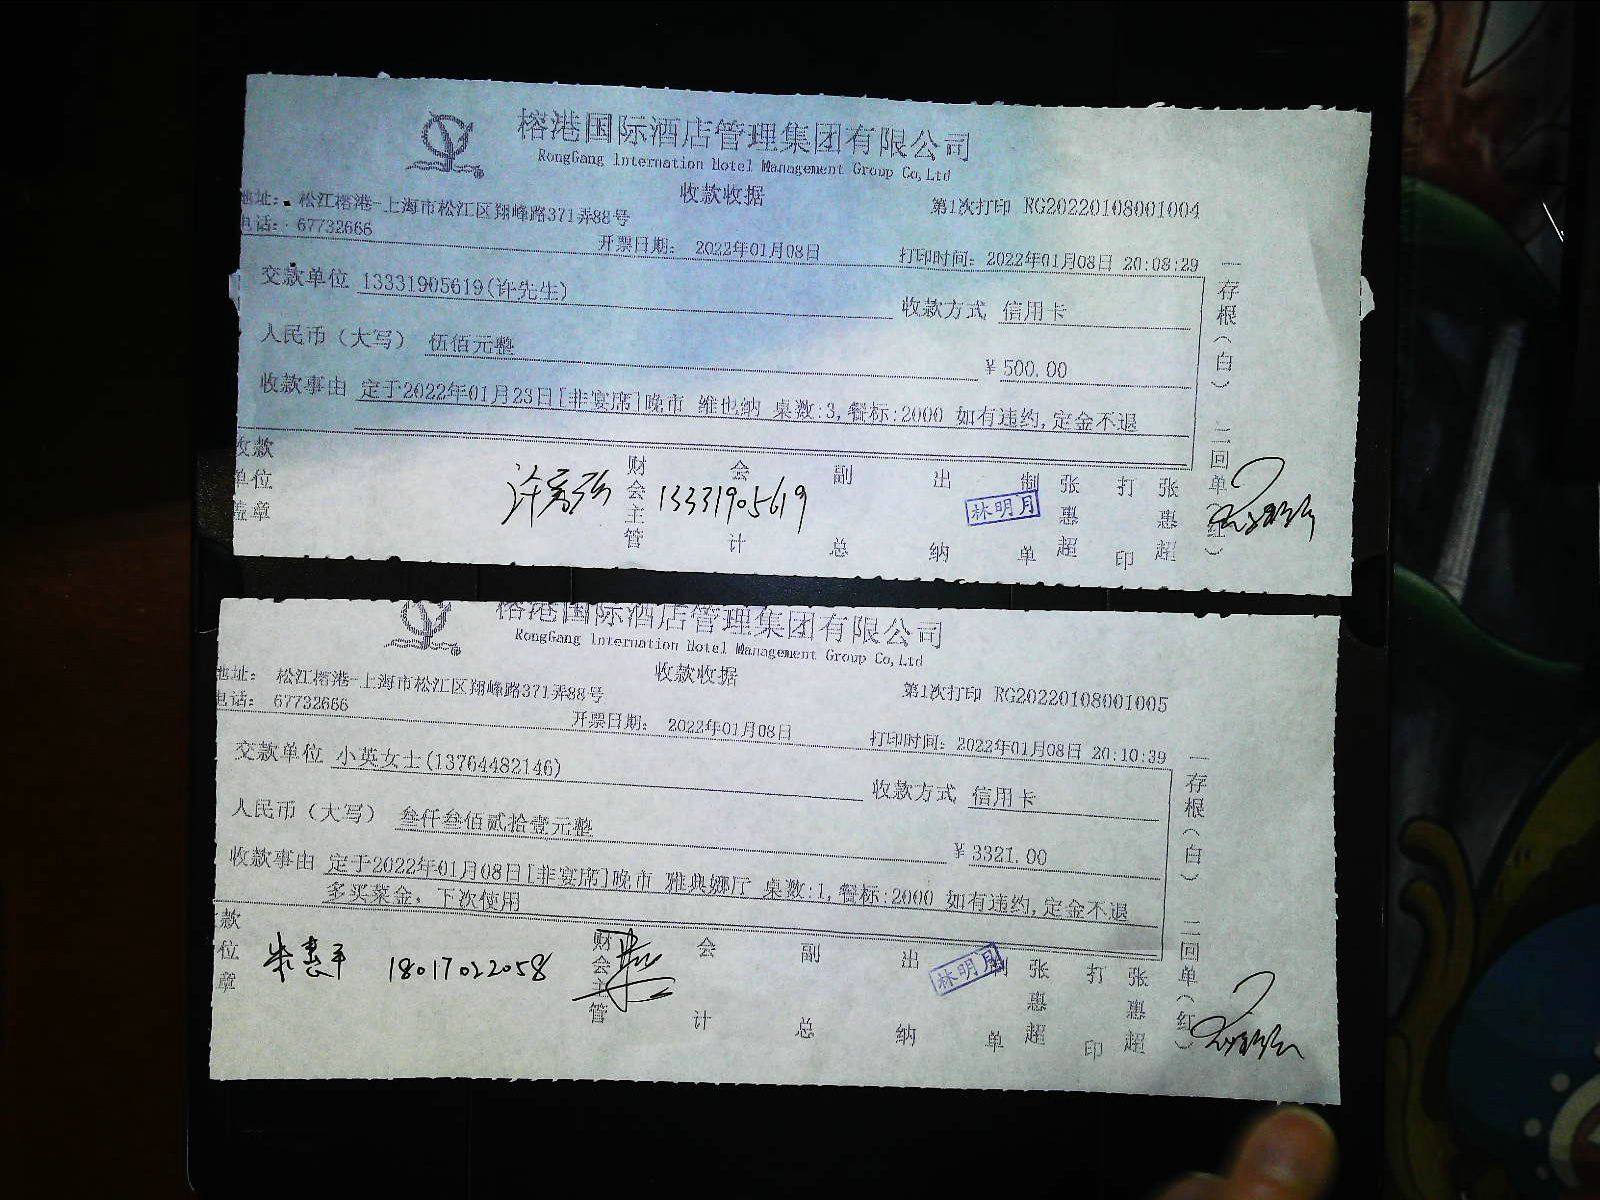 榕港国际酒店管理集团有限公司
RongGang International Hotel Management Group Co,Ltd
收款收据
地址: 松江榕港-上海市松江区翔峰路371弄88号
第1次打印 RG20220108001004
电话: 67732666
开票日期: 2022年01月08日
打印时间: 2022年01月08日 20:08:29
交款单位 13331905619(许先生)
收款方式 信用卡
人民币（大写） 伍佰元整
¥500.00
收款事由 定于2022年01月23日[非宴席]晚市 维也纳 桌数:3,餐标:2000 如有违约,定金不退
收款单位盖章
财会主管 13331905619
会计
副总
出纳
林明月
制单 张惠超
打印 张惠超
一存根（白） 二回单（红）
榕港国际酒店管理集团有限公司
RongGang International Hotel Management Group Co,Ltd
收款收据
地址: 松江榕港-上海市松江区翔峰路371弄88号
第1次打印 RG20220108001005
电话: 67732666
开票日期: 2022年01月08日
打印时间: 2022年01月08日 20:10:39
交款单位 小英女士(13764482146)
收款方式 信用卡
人民币（大写） 叁仟叁佰贰拾壹元整
¥3321.00
收款事由 定于2022年01月08日[非宴席]晚市 雅典娜厅 桌数:1,餐标:2000 如有违约,定金不退
多买菜金, 下次使用
款位章
朱惠平 18017022058
财会主管
会计
副总
出纳
林明月
制单 张惠超
打印 张惠超
一存根（白） 二回单（红）